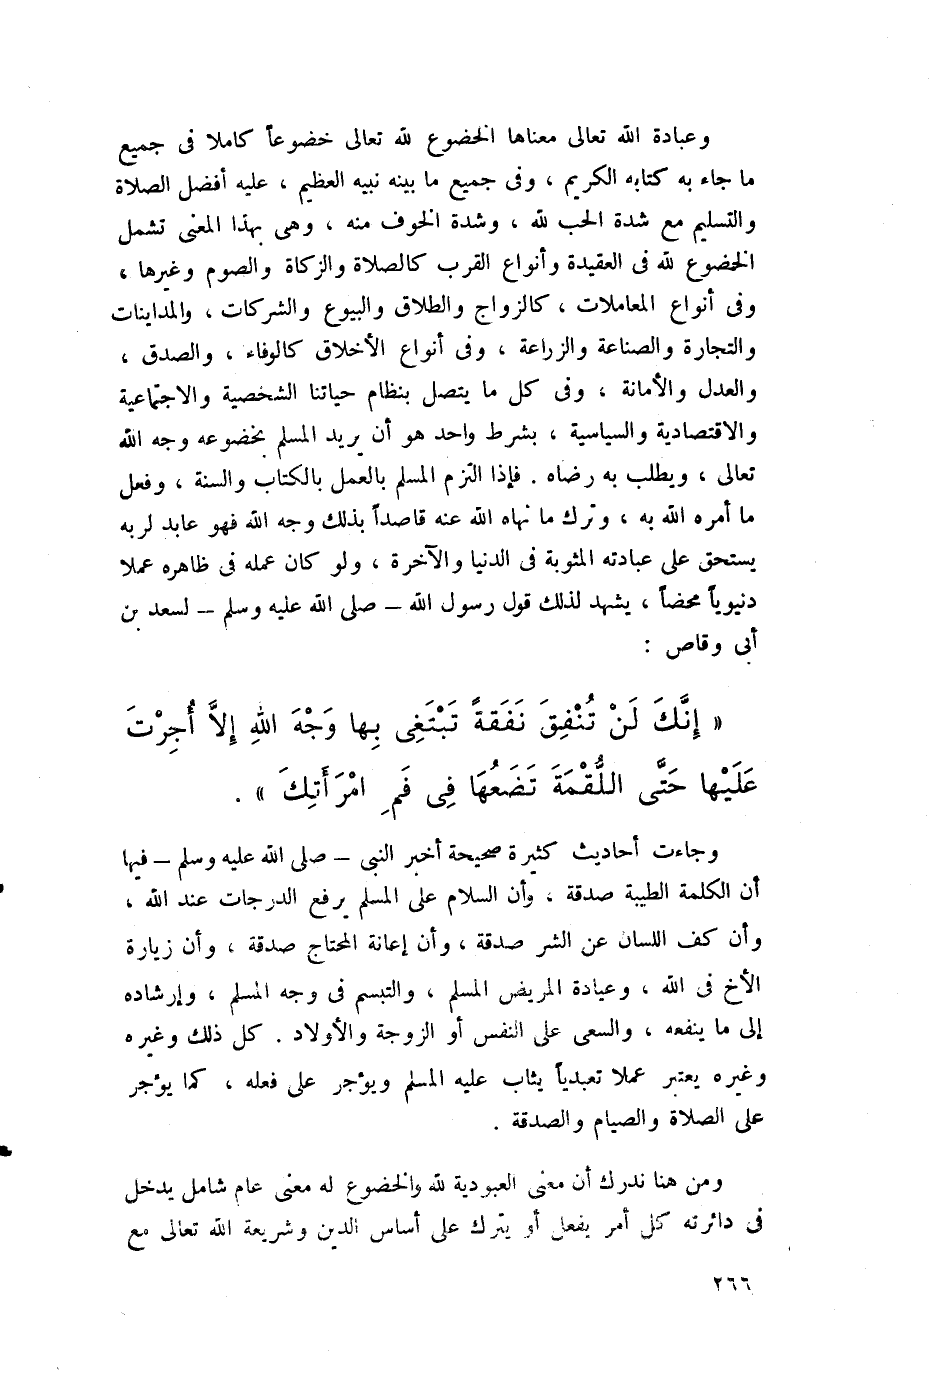 وعبادة الله تعالى معناها الخضوع لله تعالى خضوعاً كاملا فى جميع
ما جاء به كتابه الكريم ، وفى جميع ما بينه نبيه العظيم ، عليه أفضل الصلاة
والتسليم مع شدة الحب لله ، وشدة الخوف منه ، وهى بهذا المعنى تشمل
الخضوع لله فى العقيدة وأنواع القرب كالصلاة والزكاة والصوم وغيرها ،
وفى أنواع المعاملات ، كالزواج والطلاق والبيوع والشركات ، والمداينات
والتجارة والصناعة والزراعة ، وفى أنواع الأخلاق كالوفاء ، والصدق ،
والعدل والأمانة ، وفى كل ما يتصل بنظام حياتنا الشخصية والاجتماعية
والاقتصادية والسياسية ، بشرط واحد هو أن يريد المسلم بخضوعه وجه الله
تعالى ، ويطلب به رضاه . فإذا التزم المسلم بالعمل بالكتاب والسنة ، وفعل
ما أمره الله به ، وترك ما نهاه الله عنه قاصداً بذلك وجه الله فهو عابد لربه
يستحق على عبادته المثوبة فى الدنيا والآخرة ، ولو كان عمله فى ظاهره عملا
دنيوياً محضاً ، يشهد لذلك قول رسول الله – صلى الله عليه وسلم – لسعد بن
أبى وقاص :
« إِنَّكَ لَنْ تُنْفِقَ نَفَقةً تَبْتَغِى بِها وَجْهَ اللهِ إِلاَّ أُجِرْتَ
عَلَيْها حَتَّى اللُّقْمَةَ تَضَعُهَا فِى فَمِ امْرَأَتِكَ » .
وجاءت أحاديث كثيرة صحيحة أخبر النبى – صلى الله عليه وسلم – فيها
أن الكلمة الطيبة صدقة ، وأن السلام على المسلم يرفع الدرجات عند الله ،
وأن كف اللسان عن الشر صدقة ، وأن إعانة المحتاج صدقة ، وأن زيارة
الأخ فى الله ، وعيادة المريض المسلم ، والتبسم فى وجه المسلم ، وإرشاده
إلى ما ينفعه ، والسعى على النفس أو الزوجة والأولاد . كل ذلك وغيره
وغيره يعتبر عملا تعبدياً يثاب عليه المسلم ويؤجر على فعله ، كما يؤجر
على الصلاة والصيام والصدقة .
ومن هنا ندرك أن معنى العبودية لله والخضوع له معنى عام شامل يدخل
فى دائرته كل أمر يفعل أو يترك على أساس الدين وشريعة الله تعالى مع
٢٦٦